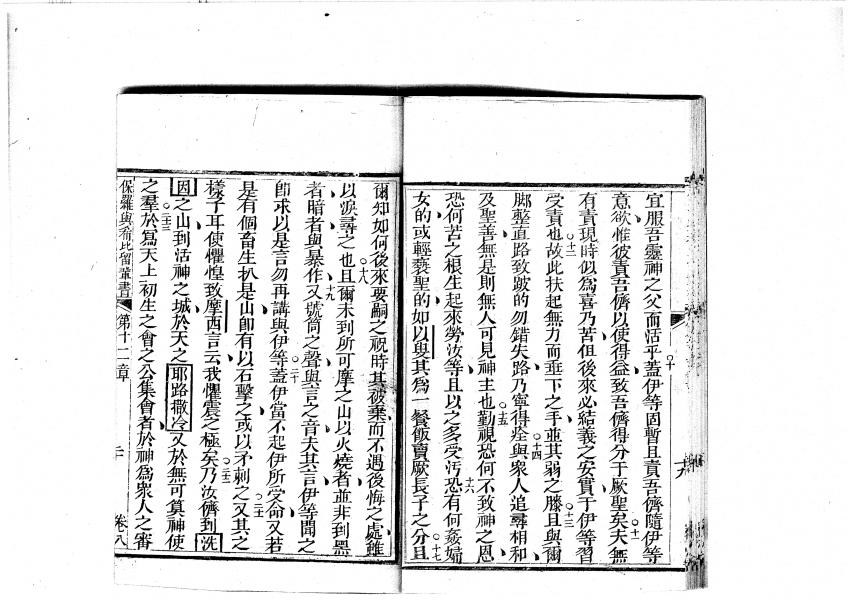 宜服吾靈神之父而活乎蓋伊等固暫且責吾儕隨伊等
意欲惟彼責吾儕以使得益致吾儕得分于厥聖矣夫無
有責現時似為喜乃苦但後來必結義之安實于伊等習
受責也故此扶起無力而垂下之手並其弱之膝且與爾
脚整直路致跛的勿錯失路乃寧得痊與衆人追尋相和
及聖善無是則無人可見神主也勤視恐何不致神之恩
恐何苦之根生起來勞汝等且以之多受污恐有何姦婦
女的或輕褻聖的如以叟其為一餐飯賣厥長子之分且
爾知如何後來要嗣之祝時其被棄而不遇後悔之處雖
以淚尋之也且爾未到所可摩之山以火燒者並非到黑
者暗者與暴作又號筒之聲與言之音夫其言伊等聞之
即求以是言勿再講與伊等蓋伊當不起伊所受命又若
是有個畜生扒是山即有以石擊之或以矛刺之又其之
樣子耳使懼惶致摩西言云我懼震之極矣乃汝儕到洗
因之山到活神之城於天之耶路撒冷又於無可算神使
之羣於為天上初生之會之公集會者於神為衆人之審
保羅與希比留輩書 第十二章 二十 卷八